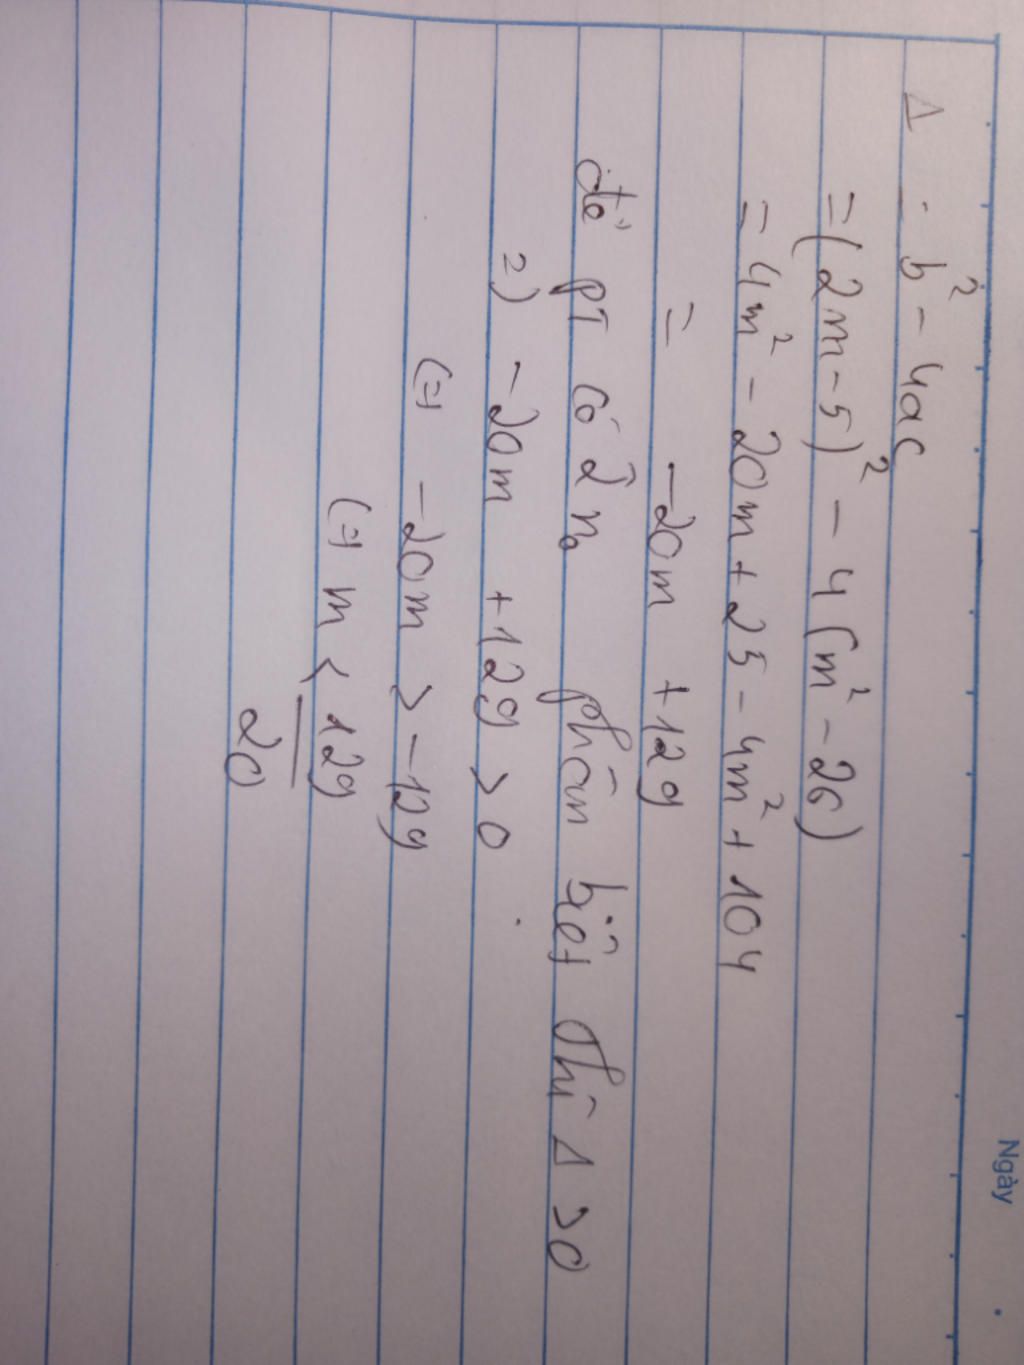 Ngày
Δ = b² - 4ac
= (2m - 5)² - 4(m² - 26)
= 4m² - 20m + 25 - 4m² + 104
= -20m + 129
để pT có 2 n₀ phân biệt thì Δ > 0
=) -20m + 129 > 0
(=) -20m > -129
(=) m < 129/20